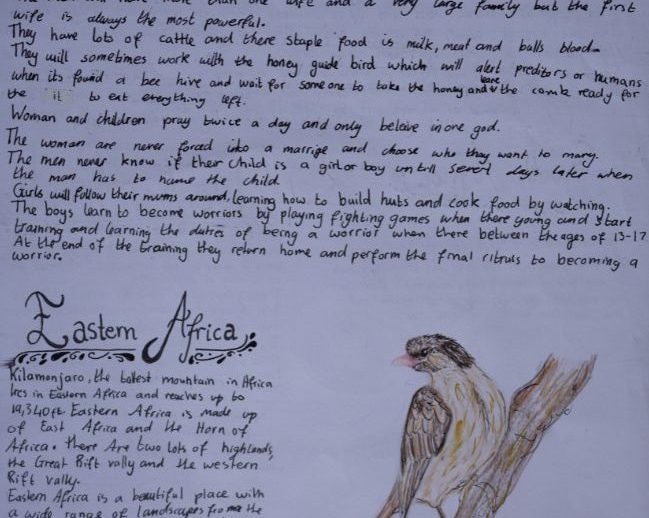 The men will have more than one wife and a very large family but the first
wife is always the most powerful.
They have lots of cattle and there staple food is milk, meat and bulls blood.
They will sometimes work with the honey guide bird which will alert preditors or humans
when its found a bee hive and wait for someone to take the honey and leave the comb ready for
the to eat everything left.
Woman and children pray twice a day and only beleive in one god.
The woman are never forced into a marrige and choose who they want to marry.
The men never know if their child is a girl or boy untill days later when
the man has to name the child.
Girls will follow their mums around, learning how to build huts and cook food by watching.
The boys learn to become worriors by playing fighting games when there young and start
training and learning the duties of being a worrior when there between the ages of 13-17
At the end of the training they return home and perform the final rituals to becoming a
worrior.
Eastern Africa
Kilamonjaro, the tallest mountain in Africa
lies in Eastern Africa and reaches up to
19,340ft Eastern Africa is made up
of East Africa and the Horn of
Africa. there Are two lots of highlands,
the Great Rift vally and the western
Rift vally.
Eastern Africa is a beautiful place with
a wide range of landscapes from the